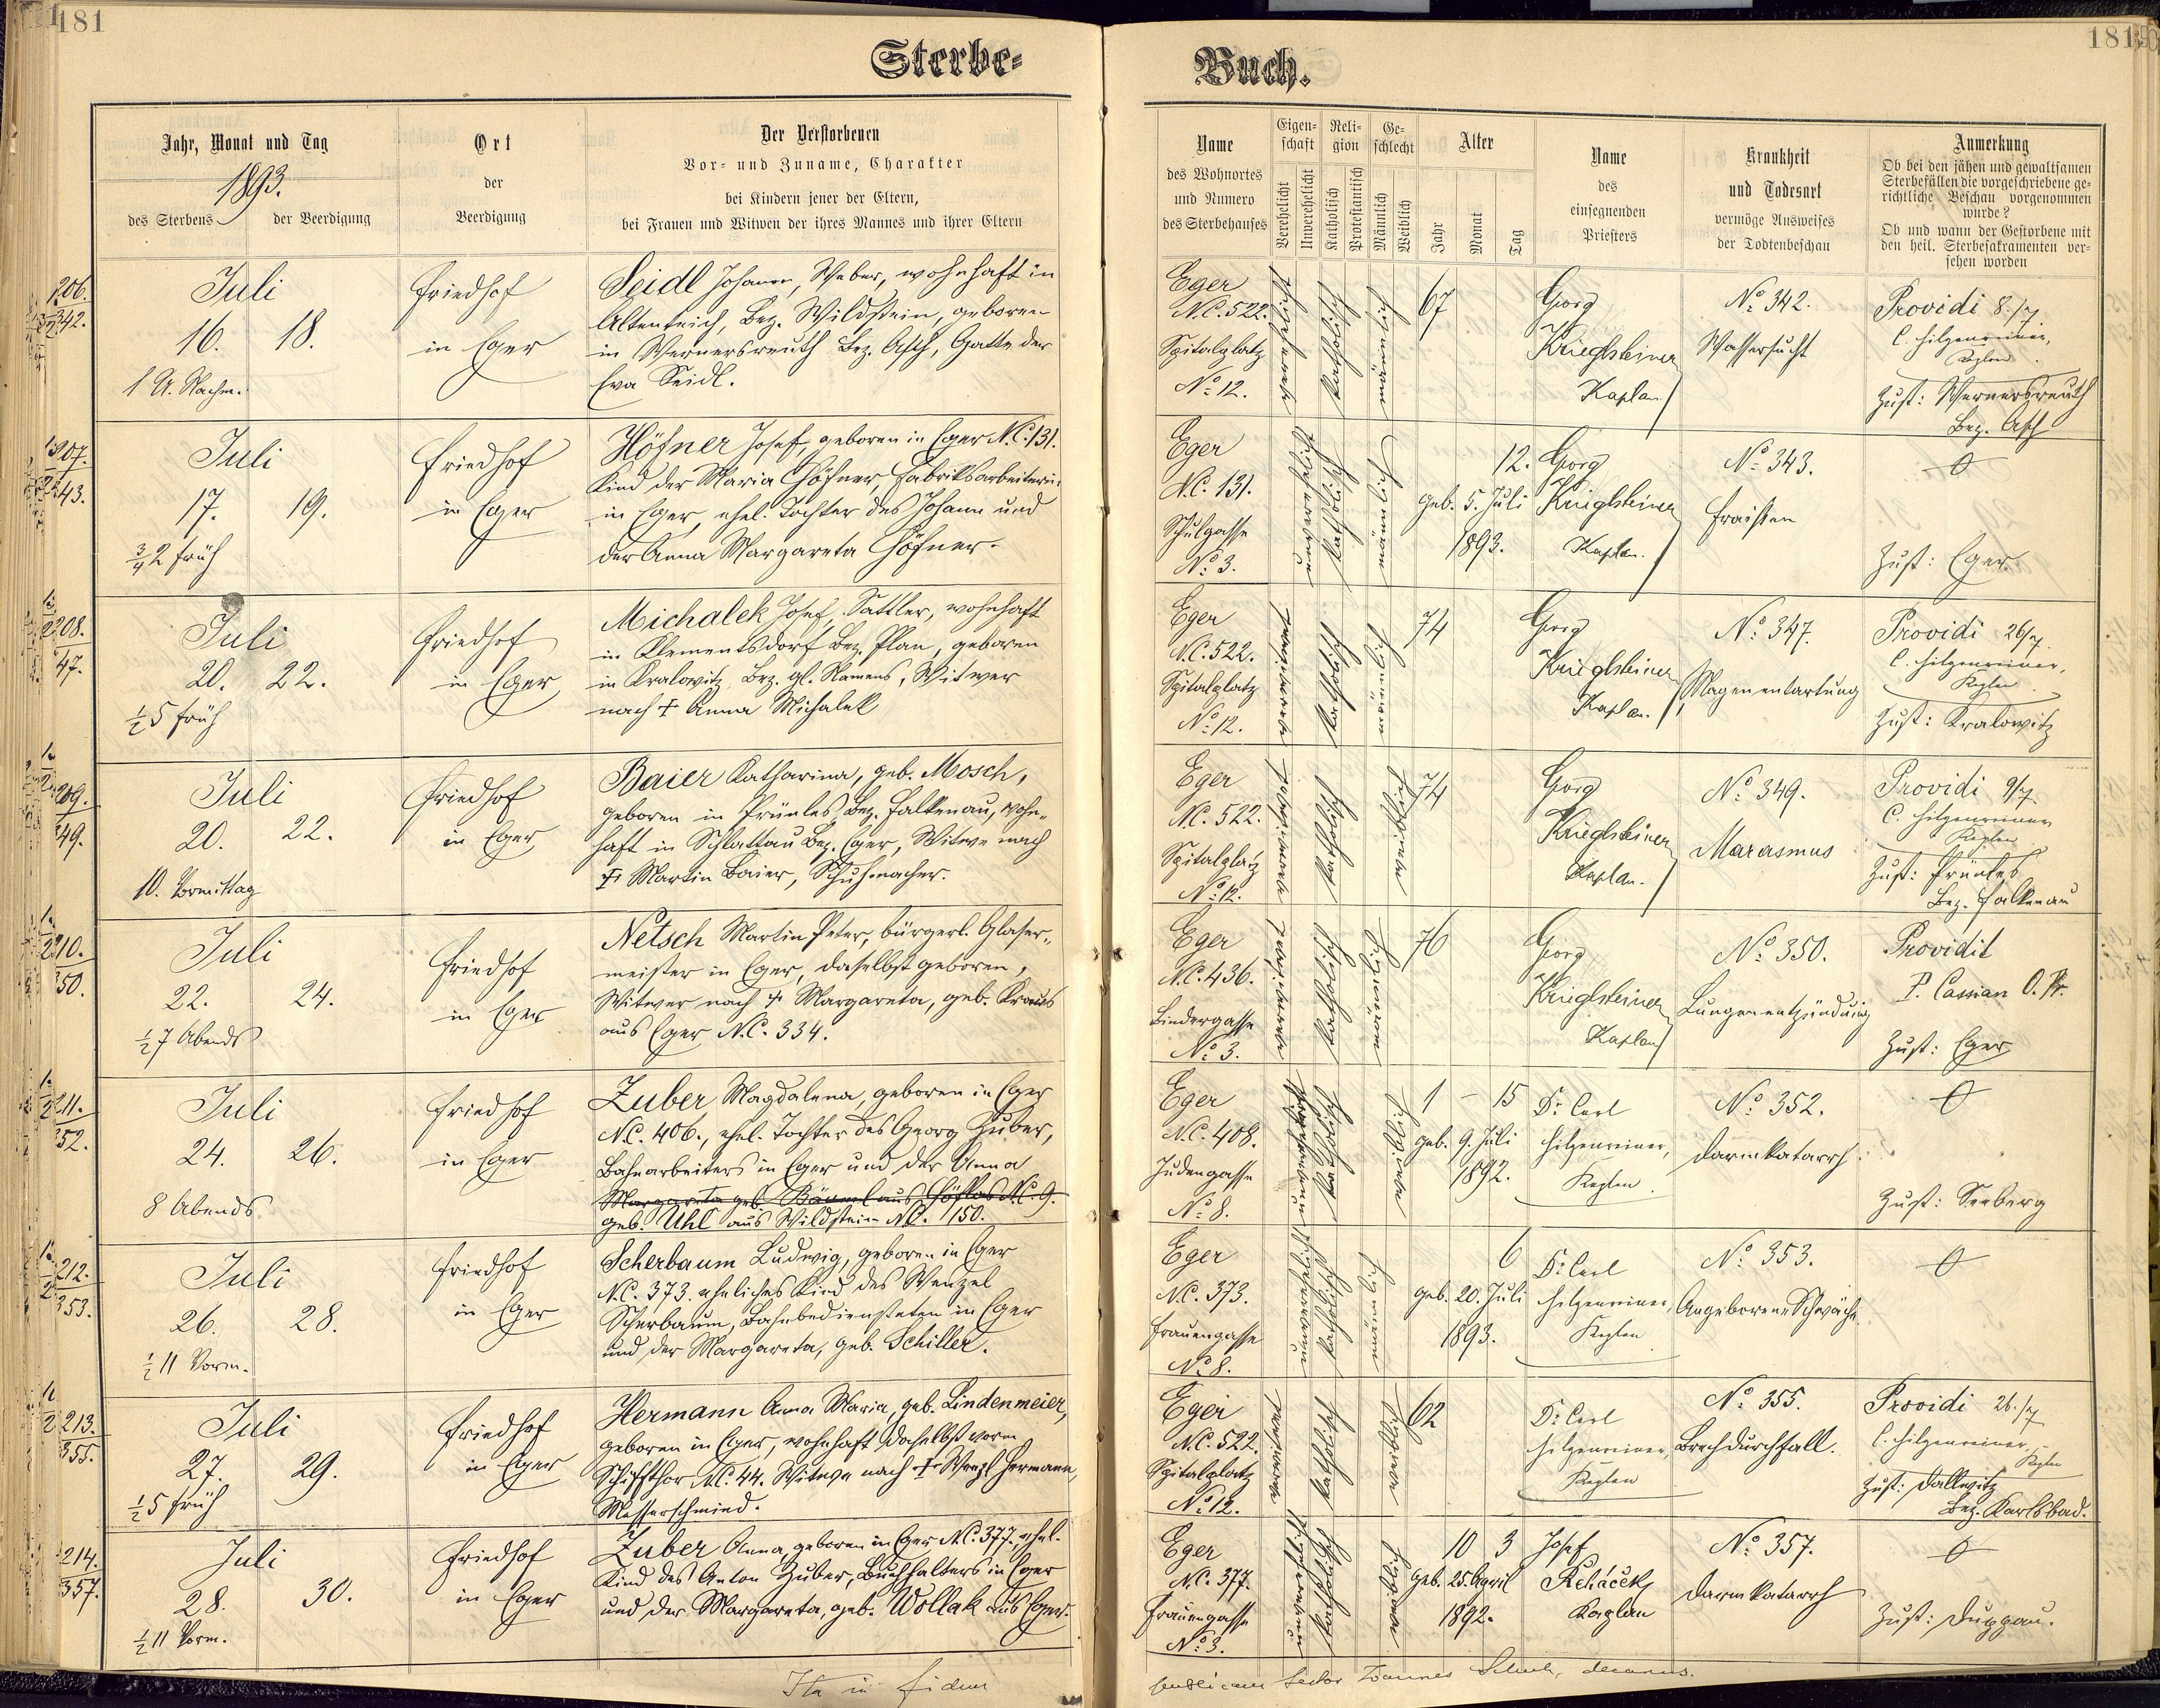 181
181
Sterbe-
Buch.
Jahr, Monat und Tag
1893.
des Sterbens
der Beerdigung
Ort
der
Beerdigung
Der Verstorbenen
Vor- und Zuname, Charakter
bei Kindern jener der Eltern,
bei Frauen und Witwen der ihres Mannes und ihrer Eltern
Name
des Wohnortes
und Numero
des Sterbehauses
Eigen-
schaft
Verehelicht
Unverehelicht
Reli-
gion
Katholisch
Protestantisch
Ge-
schlecht
Männlich
Weiblich
Alter
Jahr
Monat
Tag
Name
des
einsegnenden
Priesters
Krankheit
und Todesart
vermöge Ausweises
der Todtenbeschau
Anmerkung
Ob bei den jähen und gewaltsamen
Sterbefällen die vorgeschriebene ge-
richtliche Beschau vorgenommen
wurde?
Ob und wann der Gestorbene mit
den heil. Sterbesakramenten ver-
sehen worden
206.
342.
Juli
16. 18.
1 U. Nachm.
Friedhof
in Eger
Seidl Johann, Weber, wohnhaft in
Altenteich, Bez. Wildstein, geboren
in Wernersreuth Bez. Asch, Gatte der
Eva Seidl.
Eger
N.C. 522.
Spitalplatz
No 12.
verehelicht
katholisch
männlich
67
Georg
Krieglsteiner
Kaplan
No 342.
Wassersucht
Providi 8./7
C. Hilgenreiner,
Kaplan.
Zust: Wernersreuth
Bez. Asch
207.
343.
Juli
17. 19.
3/4 2 früh
Friedhof
in Eger
Höfner Josef, geboren in Eger N.C. 131.
Kind der Maria Höfner Fabriksarbeiterin
in Eger, ehel. Tochter des Johann und
der Anna Margareta Höfner.
Eger
N.C. 131.
Schulgasse
No 3.
unverehelicht
katholisch
männlich
12.
geb. 5. Juli
1893.
Georg
Krieglsteiner
Kaplan.
No 343.
Fraisen
Zust: Eger.
208.
47.
Juli
20. 22.
1/2 5 früh
Friedhof
in Eger
Michalek Josef, Sattler, wohnhaft
in Klementsdorf Bez. Plan, geboren
in Kralowitz Bez. gl. Namens, Witwer
nach † Anna Michalek
Eger
N.C. 522.
Spitalplatz
No 12.
verwitwet
katholisch
männlich
74
Georg
Krieglsteiner
Kaplan.
No 347.
Magenentartung
Providi 26/7
C. Hilgenreiner,
Kaplan.
Zust: Kralowitz
209.
349.
Juli
20. 22.
10. Vormittag
Friedhof
in Eger
Baier Katharina, geb. Mosch,
geboren in Prünles, Bez. Falkenau, wohn-
haft in Schlattau Bez. Eger, Witwe nach
† Martin Baier, Schuhmacher.
Eger
N.C. 522.
Spitalplatz
No 12.
verwitwet
katholisch
weiblich
74
Georg
Krieglsteiner
Kaplan.
No 349.
Marasmus
Providi 9/7
C. Hilgenreiner
Kaplan
Zust: Prünles
Bez. Falkenau
210.
350.
Juli
22. 24.
1/2 7 Abends
Friedhof
in Eger
Netsch Martin Peter, bürgerl. Glaser-
meister in Eger, daselbst geboren,
Witwer nach † Margareta, geb. Kraus
aus Eger N.C. 334.
Eger
N.C. 436.
Bindergasse
No 3.
verwitwet
katholisch
männlich
76
Georg
Krieglsteiner
Kaplan
No 350.
Lungenentzündung
Providit
P. Cassian O. Pr.
Zust: Eger
211.
352.
Juli
24. 26.
8 Abends
Friedhof
in Eger
Zuber Magdalena, geboren in Eger
N.C. 406., ehel. Tochter des Georg Zuber,
Bahnarbeiters in Eger und der Anna
Margareta geb. Bäuml aus Höflas N.C. 9.
geb. Uhl aus Wildstein N.C. 150.
Eger
N.C. 408.
Judengasse
No 8.
unverehelicht
katholisch
weiblich
1 – 15
geb. 9. Juli
1892.
Dr Carl
Hilgenreiner,
Kaplan.
No 352.
Darmkatarrh
Zust: Seeberg
212.
353.
Juli
26. 28.
1/2 11 Vorm.
Friedhof
in Eger
Scherbaum Ludwig, geboren in Eger
N.C. 373. eheliches Kind des Wenzel
Scherbaum, Bahnbediensteten in Eger
und der Margareta, geb. Schiller.
Eger
N.C. 373.
Frauengasse
No 8.
unverehelicht
katholisch
männlich
6
geb. 20. Juli
1893.
Dr Carl
Hilgenreiner,
Kaplan
No 353.
Angeborene Schwäche
213.
355.
Juli
27. 29.
1/2 5 früh
Friedhof
in Eger
Hermann Anna Maria, geb. Lindenmeier,
geboren in Eger, wohnhaft daselbst vorm
Schiffthor N.C. 44. Witwe nach † Wenzl Hermann,
Messerschmied.
Eger
N.C. 522.
Spitalplatz
No 12.
verwitwet
katholisch
weiblich
62
Dr Carl
Hilgenreiner,
Kaplan
No 355.
Brechdurchfall.
Providi 26./7
C. Hilgenreiner,
Kaplan
Zust: Dallwitz
Bez. Karlsbad.
214.
357.
Juli
28. 30.
1/2 11 Vorm.
Friedhof
in Eger
Zuber Anna, geboren in Eger N.C. 377., ehel.
Kind des Anton Zuber, Buchhalters in Eger
und der Margareta, geb. Wollak aus Eger.
Eger
N.C. 377.
Frauengasse
No 3.
unverehelicht
katholisch
weiblich
10 3
geb. 25. April
1892.
Josef
Reháček
Kaplan
No 357.
Darmkatarrh
Zust: Duppau.
Ita in fidem
publicam Joannes decanus.